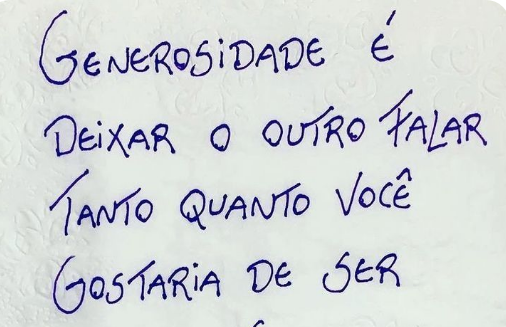 GENEROSIDADE É
DEIXAR O OUTRO FALAR
TANTO QUANTO VOCÊ
GOSTARIA DE SER